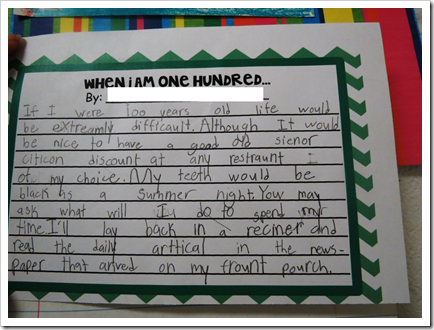 WHEN I AM ONE HUNDRED...
By:
If I were 100 years old life would
be extreamly difficault. Although It would
be nice to have a good old sienor
citicon discount at any restraunt
of my choice. My teeth would be
black as a summer night. You may
ask what will I do to spend my
time. I'll lay back in a reciner and
read the daily arttical in the news-
paper that arived on my frount pourch.